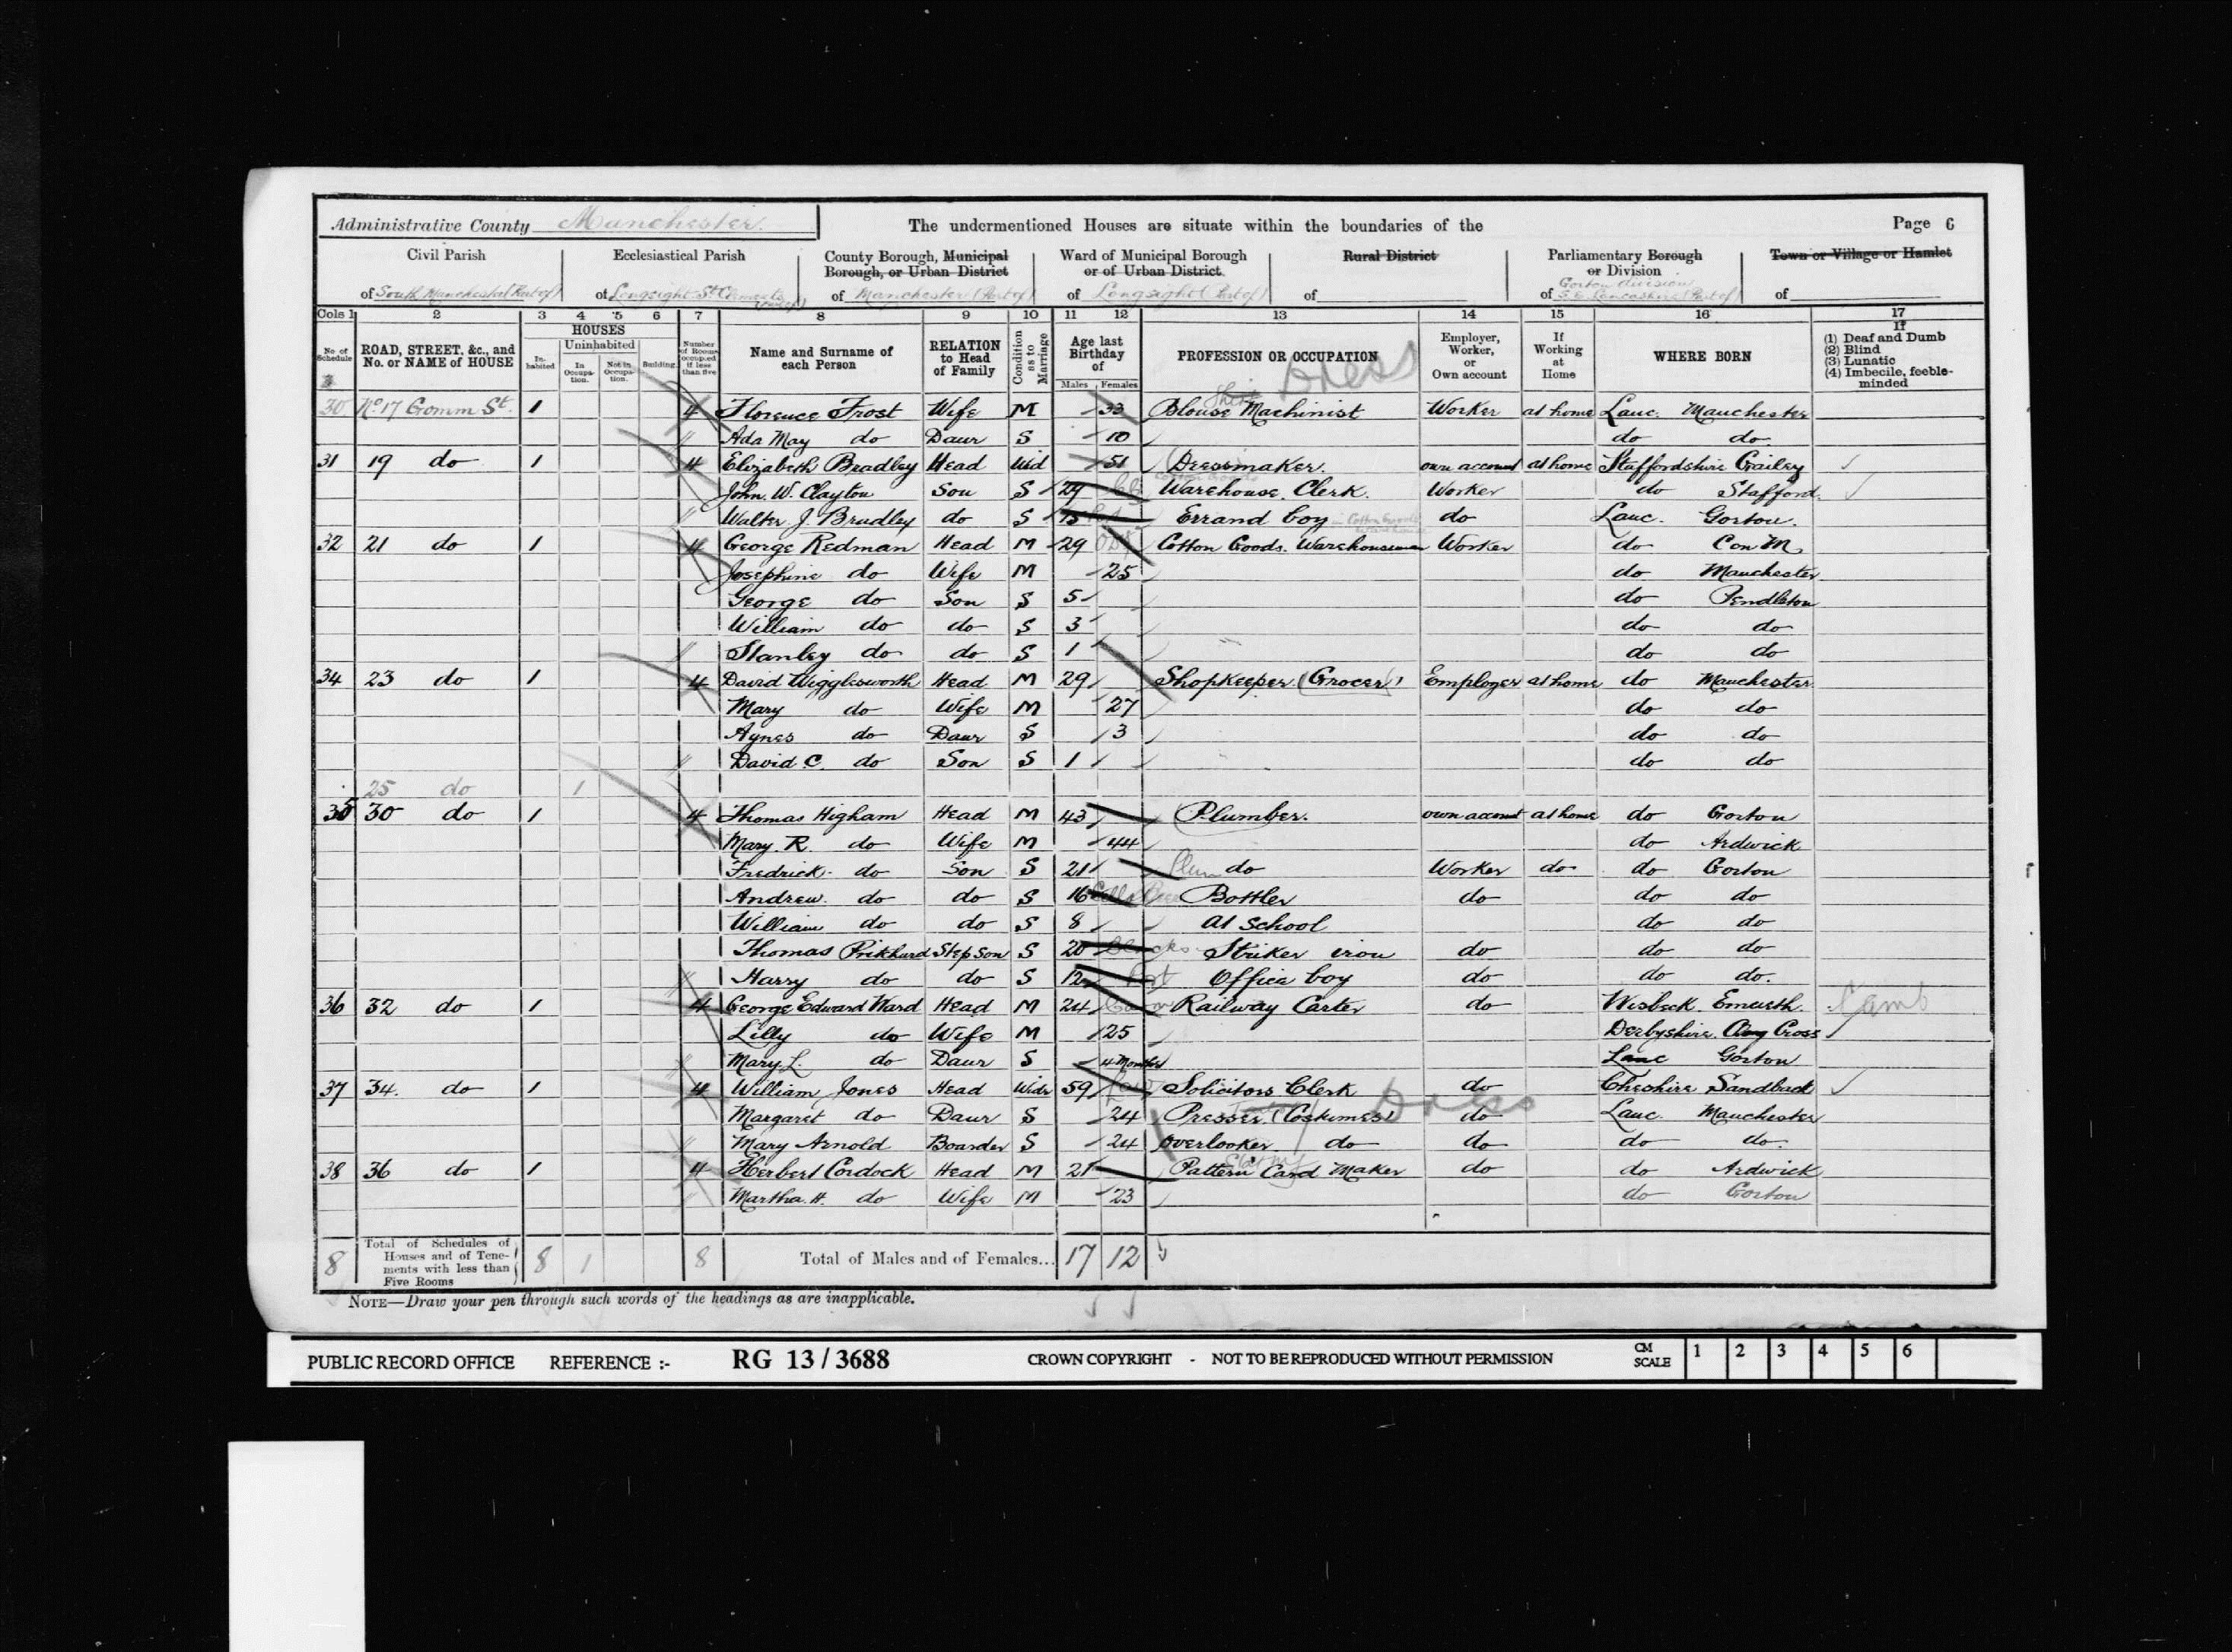 Administrative County Manchester. The undermentioned Houses are situate within the boundaries of the Page 6
Civil Parish Ecclesiastical Parish County Borough, Municipal Borough, or Urban District Ward of Municipal Borough or of Urban District Rural District Parliamentary Borough or Division Town or Village or Hamlet
of South Manchester (Part of) of Longsight St Clements (Part of) of Manchester (Part of) of Longsight (Part of) of of Gorton division S.E. Lancashire (Part of) of
Cols 1 2 3 4 5 6 7 8 9 10 11 12 13 14 15 16 17
No of Schedule ROAD, STREET, &c., and No. or NAME of HOUSE HOUSES Inhabited Uninhabited In Occupation. Not in Occupation. Building Number of Rooms occupied if less than five Name and Surname of each Person RELATION to Head of Family Condition as to Marriage Age last Birthday of Males Females PROFESSION OR OCCUPATION Employer, Worker, or Own account If Working at Home WHERE BORN If (1) Deaf and Dumb (2) Blind (3) Lunatic (4) Imbecile, feeble-minded
Shirt Dress
30 No 17 Gomm St. 1 4 Florence Frost Wife M 33 Blouse Machinist Worker at home Lanc. Manchester
Ada May do Daur S 10 do do
31 19 do 1 4 Elizabeth Bradley Head Wid 51 Dressmaker. own account at home Staffordshire Gailey
John. W. Clayton Son S 29 Warehouse Clerk. Worker do Stafford.
Walter J. Bradley do S 15 Errand boy do Lanc. Gorton.
32 21 do 1 4 George Redman Head M 29 Cotton Goods. Warehouseman Worker do Con M.
Josephine do Wife M 25 do Manchester
George do Son S 5 do Pendleton
William do do S 3 do do
Stanley do do S 1 do do
34 23 do 1 4 David Wigglesworth Head M 29 Shopkeeper (Grocer) Employer at home do Manchester.
Mary do Wife M 27 do do
Agnes do Daur S 3 do do
David C. do Son S 1 do do
25 do 1
35 30 do 1 4 Thomas Higham Head M 43 Plumber. own account at home do Gorton
Mary. R. do Wife M 44 do Ardwick
Fredrick do Son S 21 Plum do Worker do do Gorton
Andrew. do do S 16 Bottler do do do
William do do S 8 At School do do
Thomas Prikhurd Step son S 20 Striker iron do do do
Harry do do S 12 Office boy do do do.
36 32 do 1 4 George Edward Ward Head M 24 Railway Carter do Wisbeck. Emeuth. Camb
Lilly do Wife M 25 Derbyshire. Clay Cross
Mary L. do Daur S 4 Months Lanc Gorton
37 34. do 1 4 William Jones Head Widr 59 Law Solicitors Clerk do Cheshire Sandback
Margaret do Daur S 24 Presser (Costumes) Dress do Lanc. Manchester
Mary Arnold Boarder S 24 Overlooker do do do do.
38 36 do 1 4 Herbert Cordock Head M 21 Pattern Card Maker do do Ardwick
Martha. H. do Wife M 23 do Gorton
8 Total of Schedules of Houses and of Tenements with less than Five Rooms 8 1 8 Total of Males and of Females... 17 12
NOTE—Draw your pen through such words of the headings as are inapplicable.
PUBLIC RECORD OFFICE REFERENCE :- RG 13/3688 CROWN COPYRIGHT - NOT TO BE REPRODUCED WITHOUT PERMISSION CM SCALE 1 2 3 4 5 6